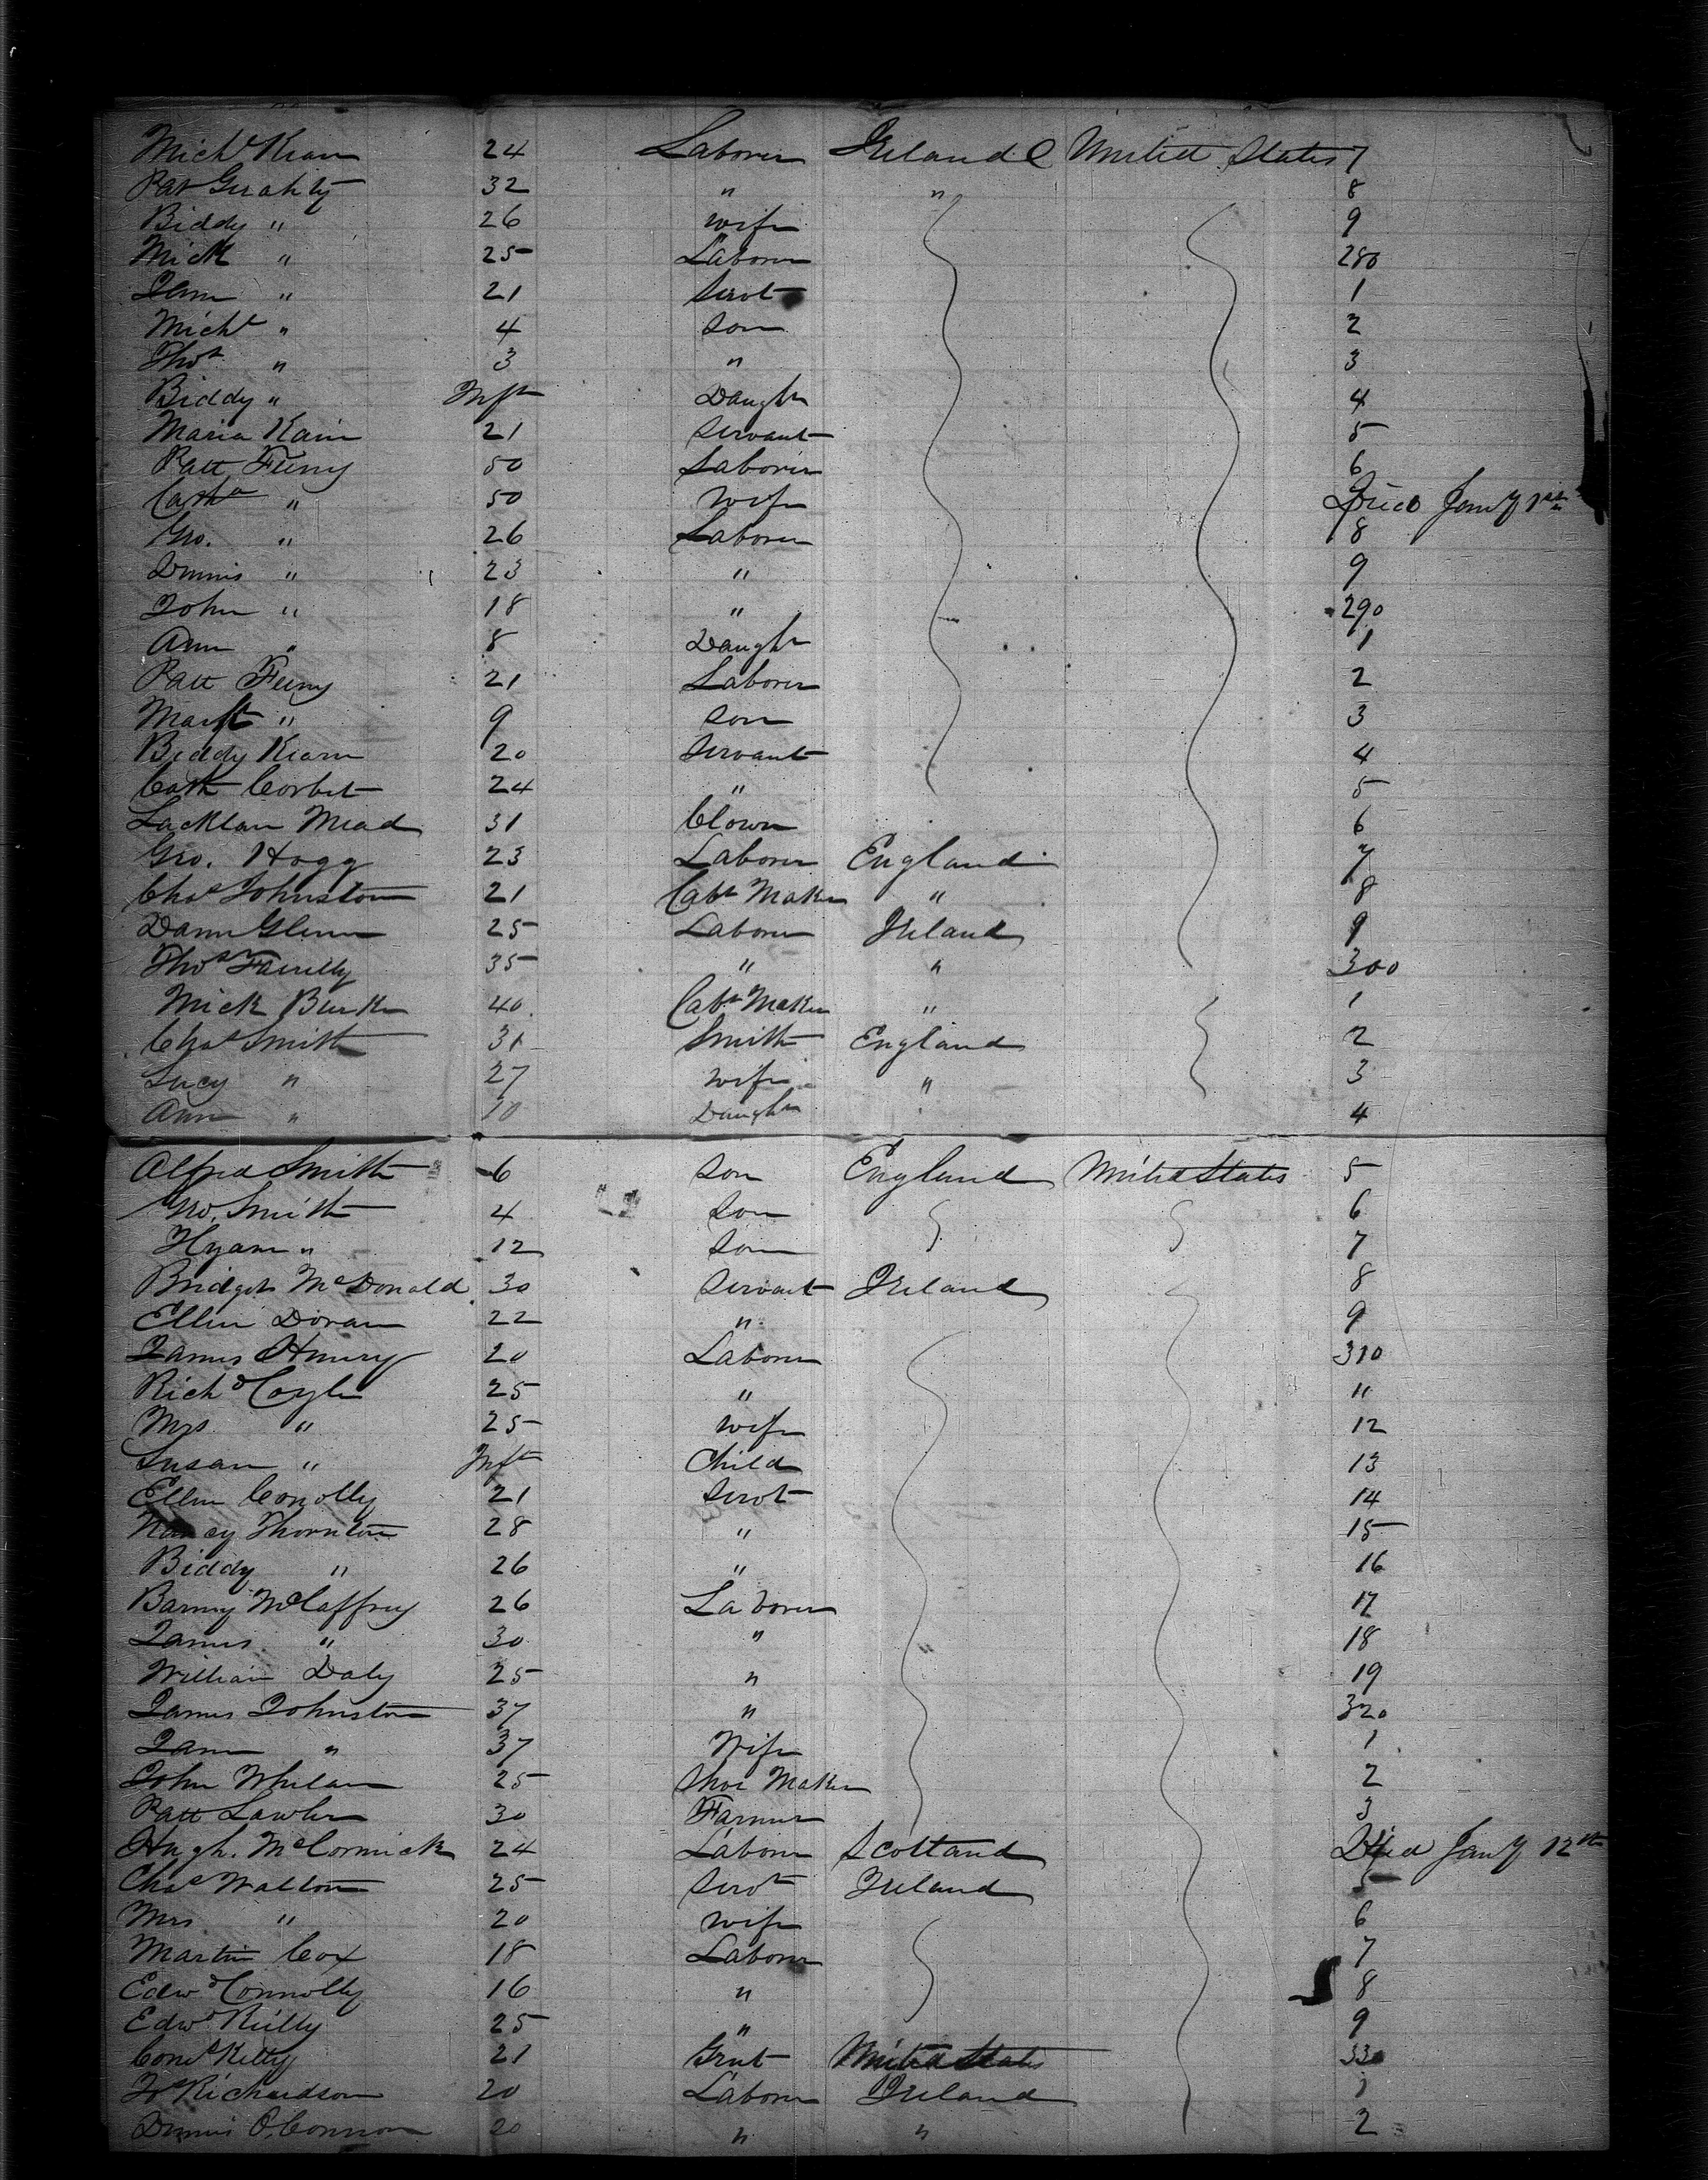 Michl Kean 24 Laborer Ireland United States 7
Pat Gerahty 32 " " 8
Biddy " 26 wife 9
Mick " 25 Laborer 280
Jane " 21 Servt 1
Michl " 4 son 2
Thos " 3 " 3
Biddy " Inft Daughr 4
Maria Kain 21 Servant 5
Patt Feeny 50 Laborer 6
Cathn " 50 Wife Died Jany 1st
Geo. " 26 Laborer 8
Dennis " 23 " 9
John " 18 " 290
Ann " 8 Daughr 1
Patt Feeny 21 Laborer 2
" 9 son 3
Biddy Kearn 20 Servant 4
Cath Corbet 24 " 5
Lacklan Mead 31 Clown 6
Geo. Hogg 23 Laborer England 7
Chas Johnston 21 Cabt Maker " 8
Dann Glenn 25 Laborer Ireland 9
Thos Farrelly 35 " " 300
Mick Burke 40 Cabt Maker " 1
Chas Smith 31 Smith England 2
Lucy " 27 wife " 3
Ann " 10 Daughr 4
Alfred Smith 6 Son England United States 5
Geo. Smith 4 Son 6
Hyam " 12 Son 7
Bridget McDonald 30 Servant Ireland 8
Ellen Doran 22 " 9
James Henery 20 Laborer 310
Richd Coyle 25 " 11
Mrs " 25 wife 12
Susan " Inft Child 13
Ellen Conolly 21 Servt 14
Nancy Thornton 28 " 15
Biddy " 26 " 16
Barney McCaffrey 26 Laborer 17
James " 30 " 18
William Daly 25 " 19
James Johnston 37 " 320
Jane " 37 Wife 1
John Whelan 25 Shoe Maker 2
Patt Lawler 30 Farmer 3
Hugh. McCormick 24 Laborer Scotland Died Jany 12th
Chas Walton 25 Servt Ireland 5
Mrs " 20 wife 6
Martin Cox 18 Laborer 7
Edwd Connolly 16 " 8
Edwd Reilly 25 " 9
Corns Kelly 21 Gent United States 330
Richardson 20 Laborer Ireland 1
Dennis O,Connor 20 " " 2